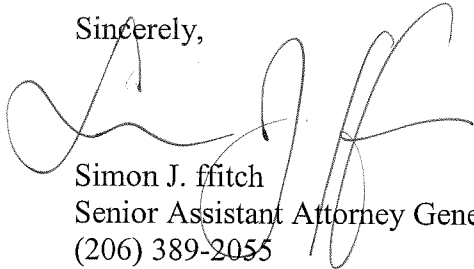 Sincerely,
Simon J. ffitch
Senior Assistant Attorney Gene
(206) 389-2055